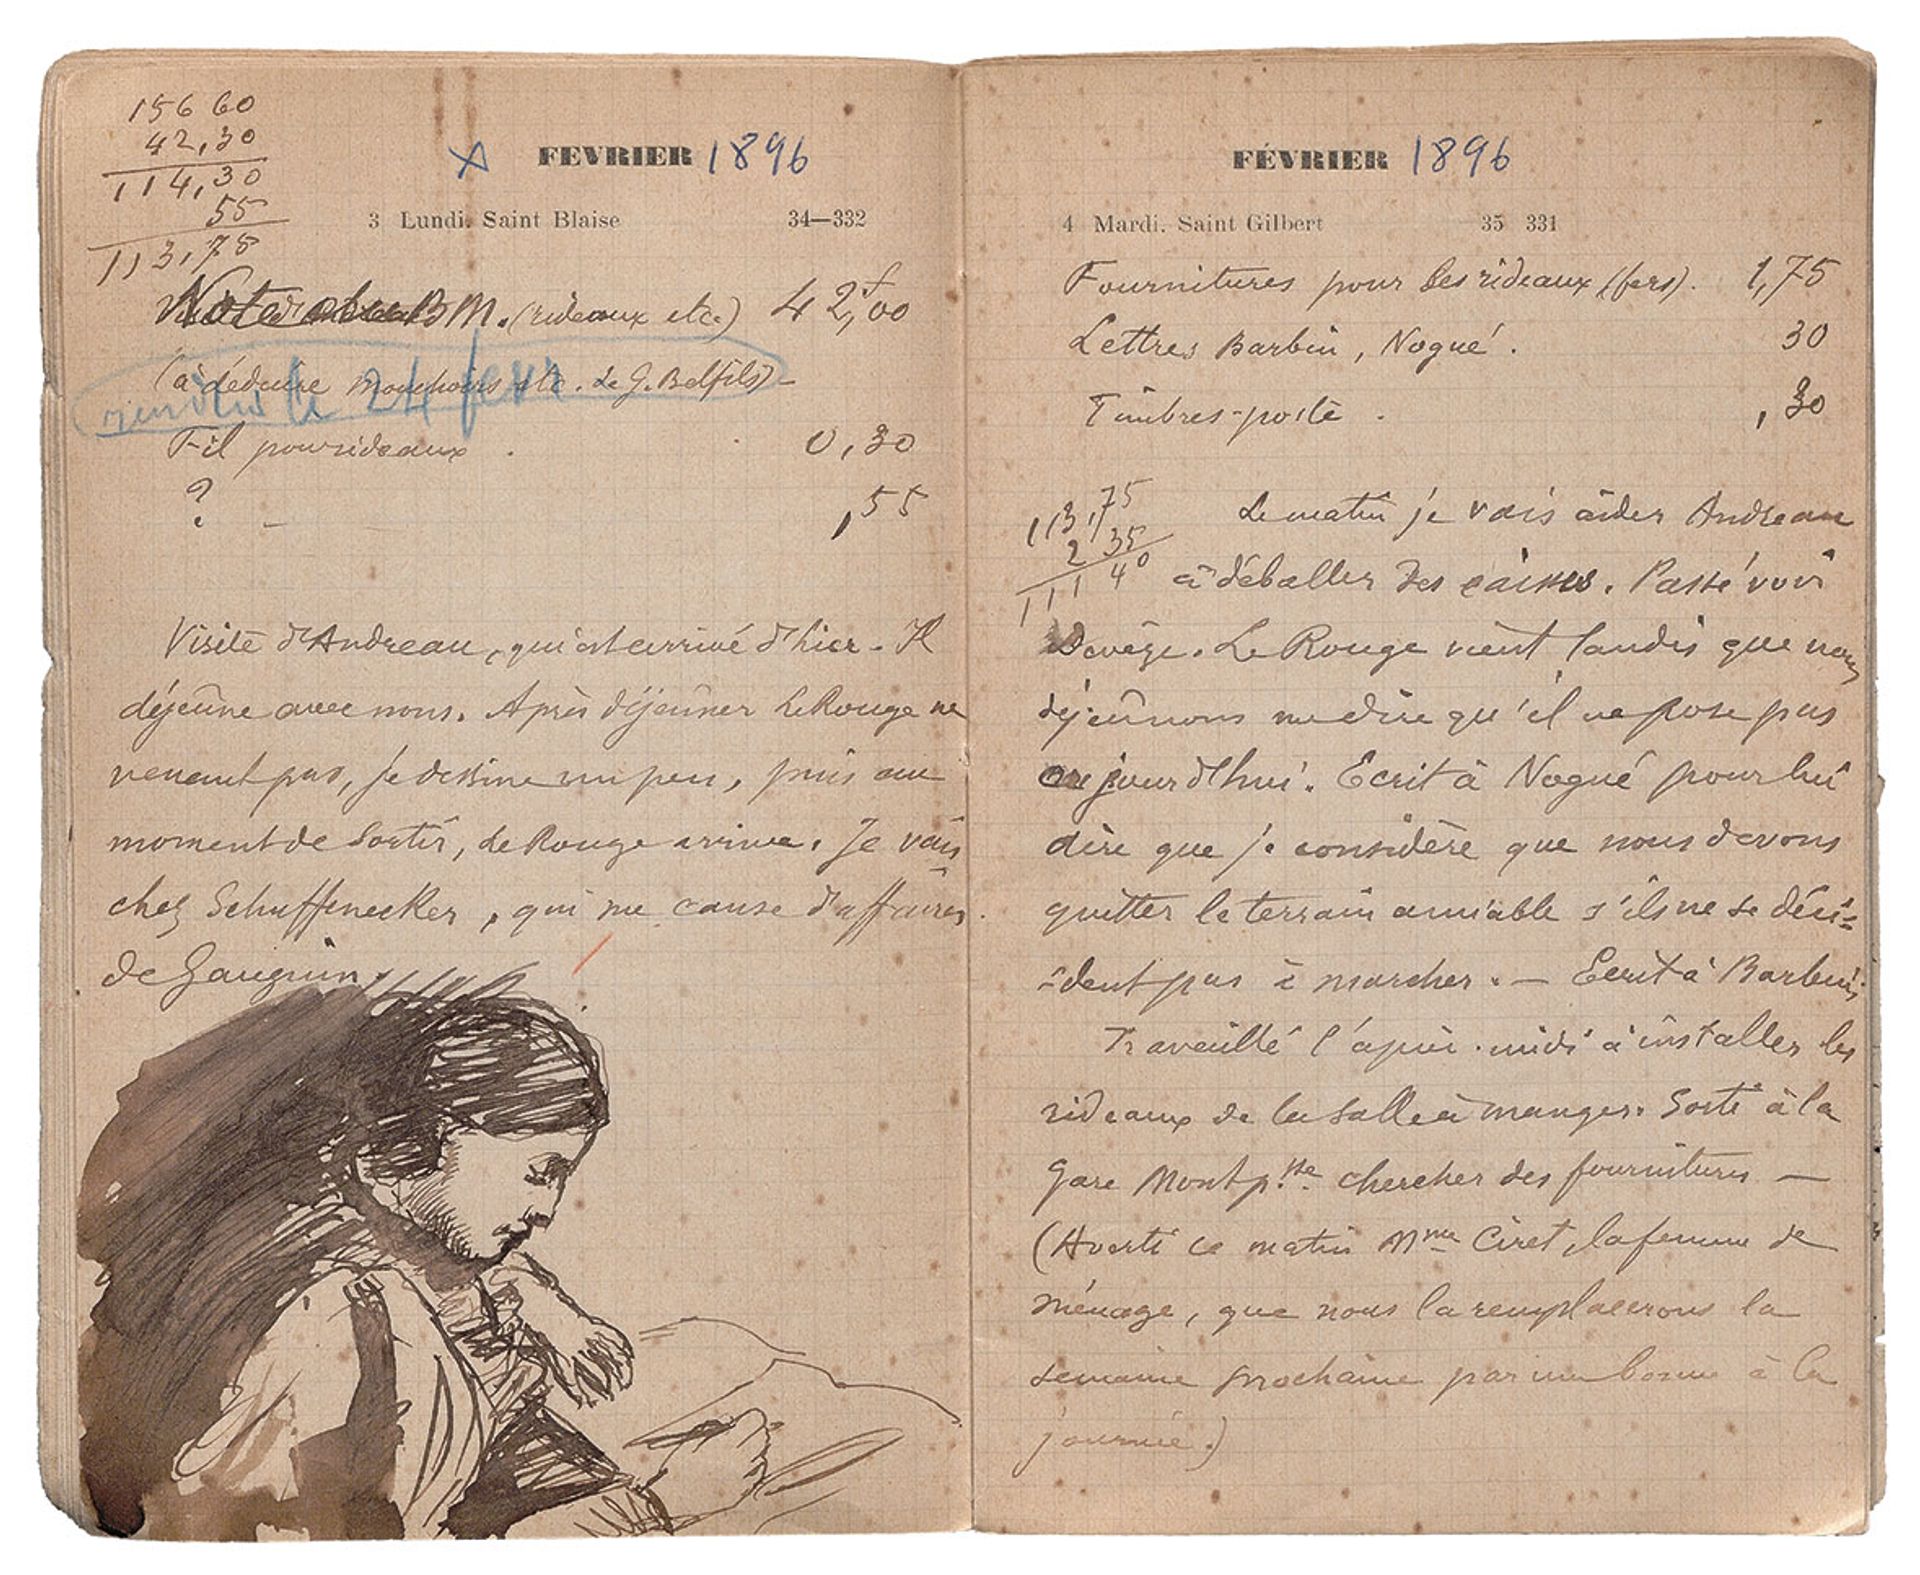 156 60
42,30
114,30
55
113,75
FEVRIER 1896
3 Lundi. Saint Blaise 34—332
BM. (rideaux etc.) 42,00
(à déduire mouchoirs etc. de G. Belfils) -
le 24 fevr
Fil pour rideaux . 0,30
? - ,55
Visite d'Andreau, qui est arrivé d'hier - Il
déjeûne avec nous. Après déjeûner Le Rouge ne
venant pas, je dessine un peu, puis au
moment de sortir, Le Rouge arrive. Je vais
chez Schuffenecker, qui me cause d'affaires
de Gauguin
FÉVRIER 1896
4 Mardi. Saint Gilbert 35 331
Fournitures pour les rideaux (fers). 1,75
Lettres Barbin, Nogué. 30
Timbres-poste . ,30
113,75
2 35
111 40
Le matin je vais aider Andreau
à déballer des caisses. Passé voir
Le Rouge vient tandis que nous
déjeûnons me dire qu'il ne pose pas
aujourd'hui. Ecrit à Nogué pour lui
dire que je considère que nous devons
quitter le terrain amiable s'ils ne se déci-
-dent pas à marcher. — Ecrit à Barbin.
Travaillé l'après-midi à installer les
rideaux de la salle à manger. Sorti à la
gare Montp.sse chercher des fournitures —
(Averti ce matin Mme Ciret, la femme de
ménage, que nous la remplacerons la
semaine prochaine par une bonne à la
journée.)